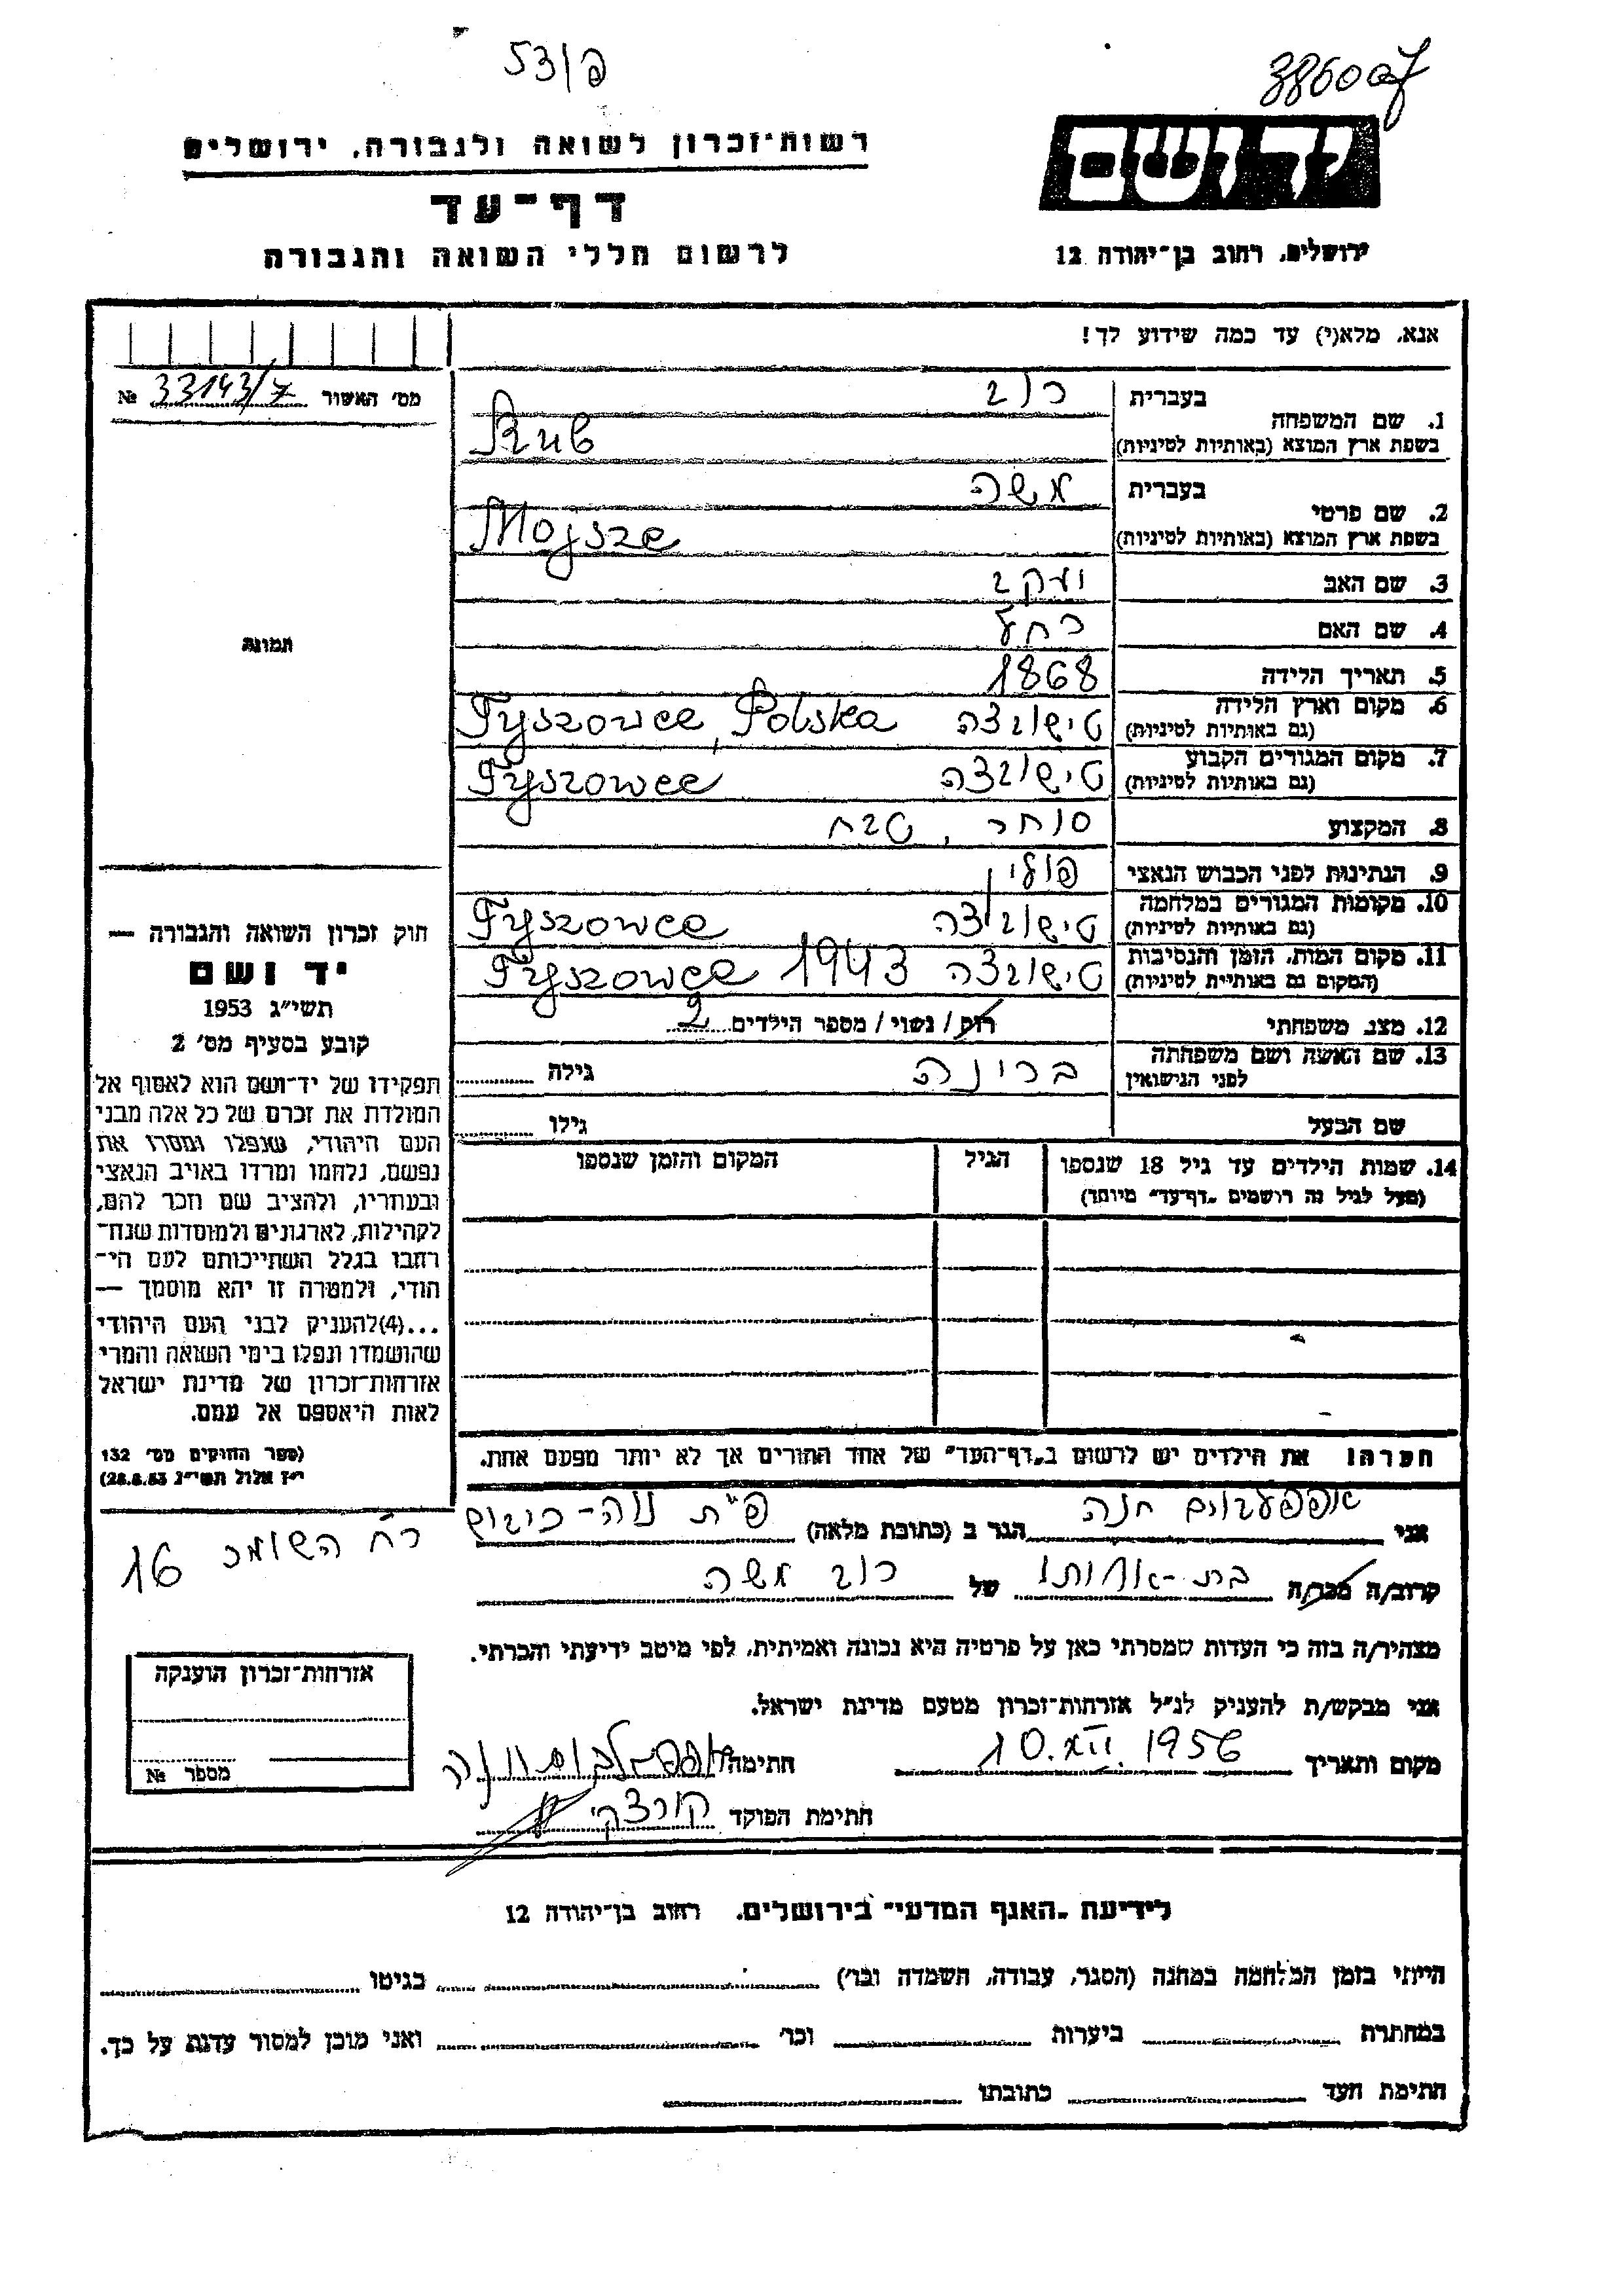 53/פ
יד ושם
רשות־זכרון לשואה ולגבורה, ירושלים
דף־עד
לרשום חללי השואה והגבורה
ירושלים, רחוב בן־יהודה 12
אנא, מלא(י) עד כמה שידוע לך!
מס׳ האשור 33143/7 №
1. שם המשפחה
בעברית רוב
בשפת ארץ המוצא (באותיות לטיניות) Rub
2. שם פרטי
בעברית משה
בשפת ארץ המוצא (באותיות לטיניות) Mojsze
3. שם האב יעקב
4. שם האם רחל
5. תאריך הלידה 1868
6. מקום וארץ הלידה טישובצה Tyszowce, Polska
(גם באותיות לטיניות)
7. מקום המגורים הקבוע טישובצה Tyszowce
(גם באותיות לטיניות)
8. המקצוע סוחר, טבח
9. הנתינות לפני הכבוש הנאצי פולין
10. מקומות המגורים במלחמה טישובצה Tyszowce
(גם באותיות לטיניות)
11. מקום המות, הזמן והנסיבות טישובצה 1943 Tyszowce
(המקום גם באותיות לטיניות)
12. מצב משפחתי רווק / נשוי / מספר הילדים 2
13. שם האשה ושם משפחתה ברונה גילה
לפני הנישואין
שם הבעל גילו
14. שמות הילדים עד גיל 18 שנספו הגיל המקום והזמן שנספו
(מעל לגיל זה רושמים „דף־עד״ מיוחד)
הערה! את הילדים יש לרשום ב„דף־העד״ של אחד ההורים אך לא יותר מפעם אחת.
תמונה
חוק זכרון השואה והגבורה —
יד ושם
תשי״ג 1953
קובע בסעיף מס׳ 2
תפקידו של יד־ושם הוא לאסוף אל
המולדת את זכרם של כל אלה מבני
העם היהודי, שנפלו ומסרו את
נפשם, נלחמו ומרדו באויב הנאצי
ובעוזריו, ולהציב שם וזכר להם,
לקהילות, לארגונים ולמוסדות שנח־
רבו בגלל השתייכותם לעם הי־
הודי, ולמטרה זו יהא מוסמך —
...(4) להעניק לבני העם היהודי
שהושמדו ונפלו בימי השואה והמרי
אזרחות־זכרון של מדינת ישראל
לאות היאספם אל עמם.
(ספר החוקים מס׳ 132
י״ז אלול תשי״ג 28.8.53)
אני חנה הגר ב (כתובת מלאה) פ״ת נוה־כיבוש
רח׳ השומר 16
קרוב/ה מכר/ה בת־אחותו של רוב משה
מצהיר/ה בזה כי העדות שמסרתי כאן על פרטיה היא נכונה ואמיתית, לפי מיטב ידיעתי והכרתי.
אני מבקש/ת להעניק לנ״ל אזרחות־זכרון מטעם מדינת ישראל.
מקום ותאריך 10.XII.1956 חתימה
חתימת הפוקד
אזרחות־זכרון הוענקה
מספר №
לידיעת „האגף המדעי״ בירושלים, רחוב בן־יהודה 12
הייתי בזמן המלחמה במחנה (הסגר, עבודה, השמדה וכו׳) בגיטו
במחתרת ביערות וכו׳ ואני מוכן למסור עדות על כך.
חתימת העד כתובתו